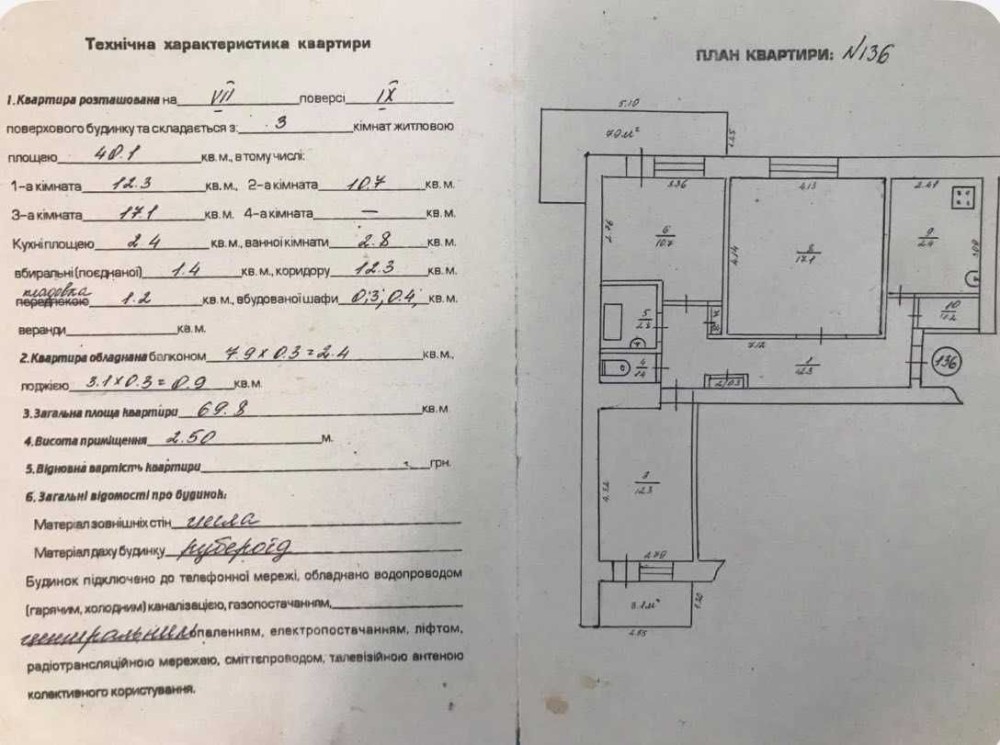 Технічна характеристика квартири
1. Квартира розташована на VII поверсі IX
поверхового будинку та складається з: 3 кімнат житловою
площею 40.1 кв. м., в тому числі:
1-а кімната 12.3 кв. м., 2-а кімната 10.7 кв. м.
3-а кімната 17.1 кв. м. 4-а кімната — кв. м.
Кухні площею кв. м., ванної кімнати 2.8 кв. м.
вбиральні (поєднаної) 1.4 кв. м., коридору 12.3 кв. м.
кладовка
передпокою 1.2 кв. м., вбудованої шафи 0,3; 0.4; кв. м.
веранди кв. м.
2. Квартира обладнана балконом 7.9 x 0.3 = 2.4 кв. м.,
лоджією 3.1 x 0.3 = 0.9 кв. м.
3. Загальна площа квартири 69.8 кв. м
4. Висота приміщення 2.50 м.
5. Відновна вартість квартири грн.
6. Загальні відомості про будинок:
Матеріал зовнішніх стін
Матеріал даху будинку рубероїд
Будинок підключено до телефонної мережі, обладнано водопроводом
(гарячим, холодним) каналізацією, газопостачанням,
центральним опаленням, електропостачанням, ліфтом,
радіотрансляційною мережею, сміттєпроводом, талевізійною антеною
колективного користування.
ПЛАН КВАРТИРИ: №136
5.10
1.25
3.36
4.13
2.41
2.76
6
10.7
4.14
17.1
9
5
2.8
10
1.2
7.12
1
12.3
136
4
1.4
4.32
12.3
2.79
3.1 м²
1.20